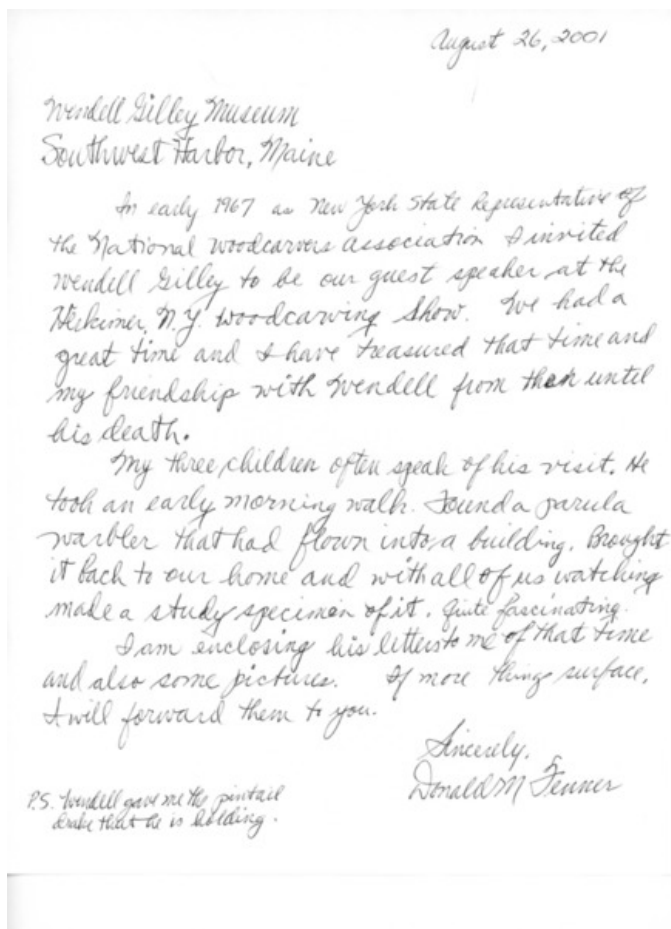 August 26, 2001
Wendell Gilley Museum
Southwest Harbor, Maine
In early 1967 as New York State Representative of
the National Woodcarvers Association I invited
Wendell Gilley to be our guest speaker at the
Herkimer, N.Y. Woodcarving Show. We had a
great time and I have treasured that time and
my friendship with Wendell from then until
his death.
My three children often speak of his visit. He
took an early morning walk. Found a parula
warbler that had flown into a building. Brought
it back to our home and with all of us watching
made a study specimen of it. Quite fascinating.
I am enclosing his letters to me of that time
and also some pictures. If more things surface,
I will forward them to you.
Sincerely,
Donald M Fenner
P.S. Wendell gave me the pintail
drake that he is holding.